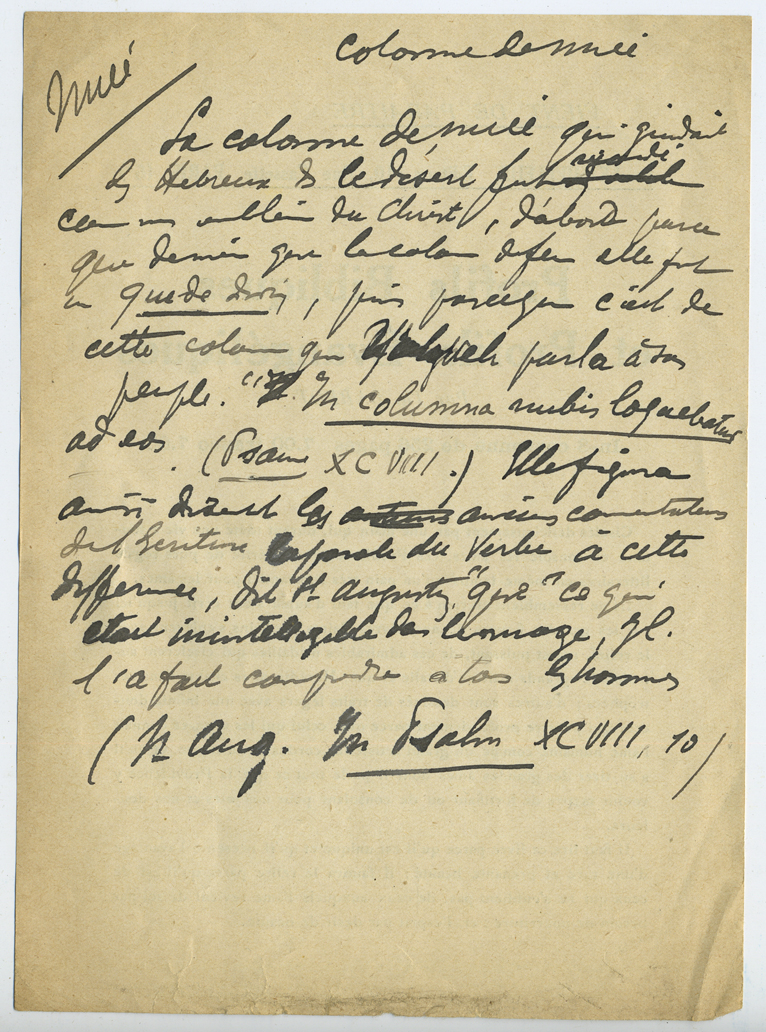 Colonne de nuée
Nuée
La colonne de nuée qui guidait
les Hébreux ds le désert fut regardé
comme un emblème du Christ, d'abord parce
que de même que la colonne de feu elle fut
un guide divin, puis parce que c'est de
cette colonne que Yahweh parla à son
peuple. " In columna nubis loquebatur
ad eos. (Psaume XCVIII.) Elle figura
aussi disent les anciens commentateurs
de l'Ecriture la parole du Verbe à cette
différence, dit St Augustin, "que" ce qui
était inintelligible dans le nuage, J.C.
l'a fait comprendre à tous les hommes
(St Aug. In Psalm XCVIII, 10)